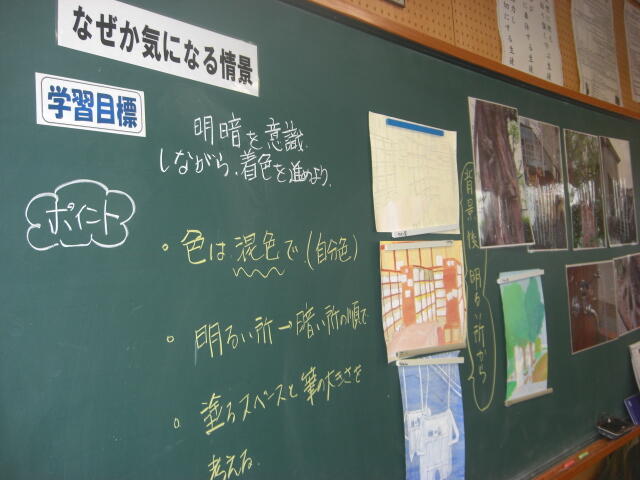 なぜか気になる情景
学習目標
明暗を意識
しながら、着色を進めよう。
ポイント
・色は混色で(自分色)
・明るい所→暗い所の順で
・塗るスペースと筆の大きさを
考える。
背景後
明るい所から